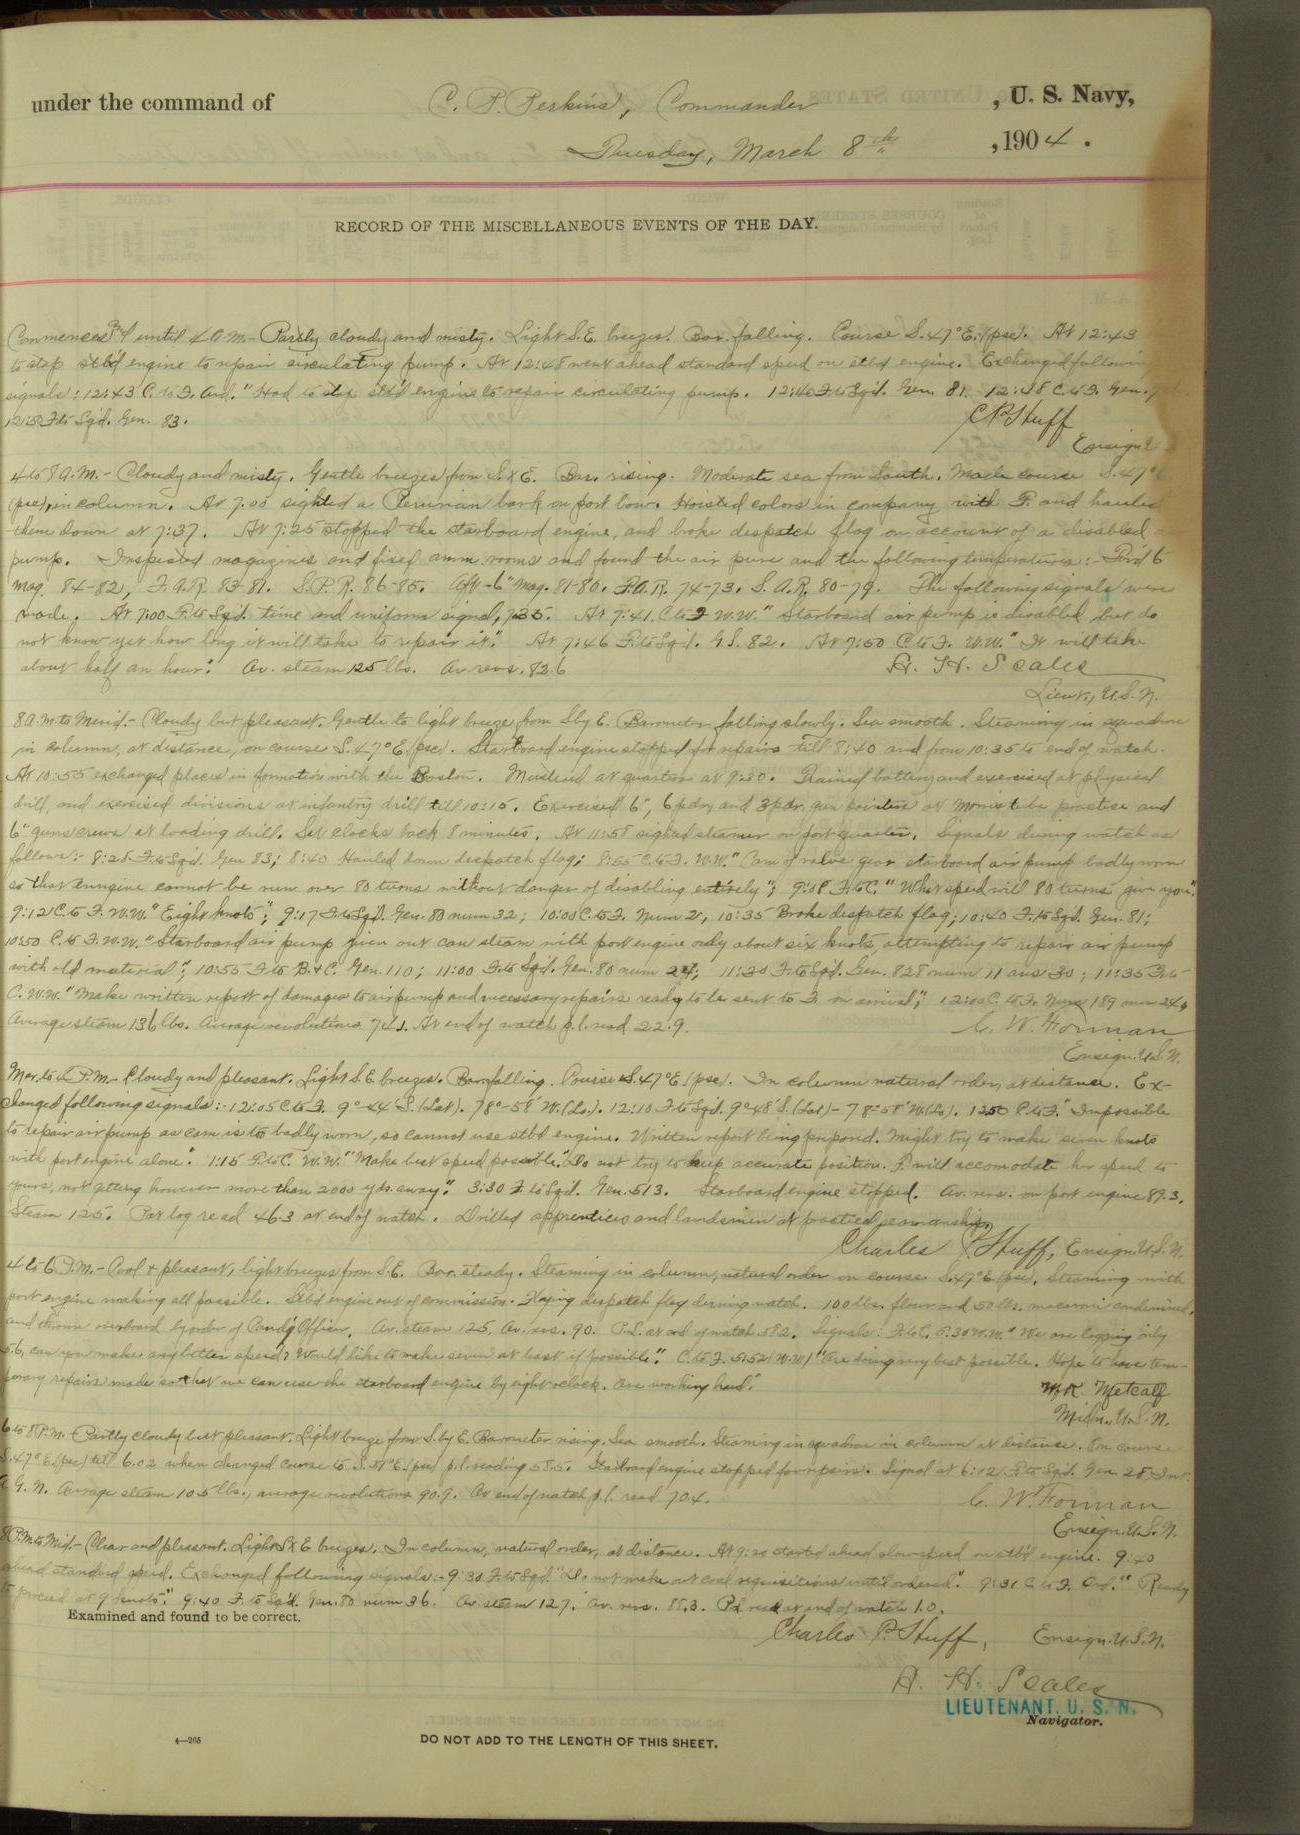 under the command of C. P. Perkins, Commander, U. S. Navy,
Tuesday, March 8th, 1904.
RECORD OF THE MISCELLANEOUS EVENTS OF THE DAY.
Commences and until 4 A.M.- Partly cloudy and misty. Light S.E. breezes. Bar. falling. Course S. 47° E. (psc). At 12:43
to stop stb'd engine to repair circulating pump. At 12:48 went ahead standard speed on stbd engine. Exchanged following
signals: 12:43 C. to F. Ard. "Had to stop stb'd engine to repair circulating pump. 12:40 F. to Sq'd. Gen. 81. 12:48 C to F. Gen.
12:52 F. to Sq'd. Gen. 83.
C P Huff
Ensign
4 to 8 A.M.- Cloudy and misty. Gentle breezes from S. x E. Bar. rising. Moderate sea from South. Made course S. 47°
(psc), in column. At 7:00 sighted a Peruvian bark on port bow. Hoisted colors in company with F. and hauled
them down at 7:37. At 7:25 stopped the starboard engine, and broke despatch flag on account of a disabled
pump. Inspected magazines and fixed amm. rooms and found the air pure and the following temperatures:- For'd 6
Mag. 84-82, F.A.R. 83-81. S.P.R. 86-85. Aft-6" Mag. 81-80. F.A.R. 74-73. S.A.R. 80-79. The following signals were
made. At 7:00 F. to Sq'd. time and uniform signal, 735. At 7:41 C to F W.W." Starboard air pump is disabled, but do
not know yet how long it will take to repair it". At 7:46 F. to Sq'd. G.S. 82. At 7:50 C to F. W.W." It will take
about half an hour." Av. steam 125 lbs. Av revs. 82.6
A. H. Scales
Lieut., U.S.N.
8 A.M. to Merid.- Cloudy but pleasant. Gentle to light breeze from S by E. Barometer falling slowly. Sea smooth. Steaming in squadron
in column, at distance, on course S. 47° E. (psc). Starboard engine stopped for repairs till 8:40 and from 10:35 to end of watch.
At 10:55 exchanged places in formation with the Boston. Mustered at quarters at 9:30. Trained battery and exercised at physical
drill, and exercised divisions at infantry drill till 10:15. Exercised 6", 6 pdr, and 3 pdr, gun pointers at Morris tube practice and
6" guns crews at loading drill. Set clocks back 8 minutes. At 11:58 sighted steamer on port quarter. Signals during watch as
follows:- 8:28 F. to Sq'd. Gen 83; 8:40 Hauled down despatch flag; 8:55 C. to F. W.W." Cam of valve gear starboard air pump badly worn
so that enngine cannot be run over 80 turns without danger of disabling entirely"; 9:08 F. to C." What speed will 80 turns give you".
9:12 C. to F. W.W." Eight knots"; 9:17 F. to Sq'd. Gen. 80 num 32; 10:00 C. to F. Num 2, 10:35 Broke despatch flag; 10:40 F. to Sq'd. Gen. 81;
10:50 C. to F. W.W." Starboard air pump given out can steam with port engine only about six knots, attempting to repair air pump
with old material"; 10:55 F. to B. & C. Gen. 110; 11:00 F. to Sq'd. Gen. 80 num 24; 11:30 F. to Sq'd. Gen. 828 num 11 ans 30; 11:35 F. to
C. W.W." Make written report of damages to air pump and necessary repairs ready to be sent to F. on arrival"; 12:00 C. to F. Num 189 num 24.
Average steam 136 lbs. Average revolutions 74.1. At end of watch p.l. read 22.9.
C. W. Forman
Ensign. U.S.N.
Mer. to 4 P.M.- Cloudy and pleasant. Light S.E. breezes. Bar. falling. Course S. 47° E. (psc). In column natural order, at distance. Ex-
changed following signals:- 12:05 C. to F. 9°-44' S. (Lat). 78°-58' W. (Lo.). 12:10 F. to Sq'd. 9°48' S. (Lat) - 78°-58' W. (Lo). 12:50 C. to F. "Impossible
to repair air pump as cam is to badly worn, so cannot use stbd engine. Written report being prepared. Might try to make seven knots
with port engine alone". 1:15 F. to C. W.W." Make best speed possible. Do not try to keep accurate position. F. will accomodate her speed to
yours, not getting however more than 2000 yds. away". 3:30 F. to Sq'd. Gen. 513. Starboard engine stopped. Av. revs. on port engine 89.3.
Steam 125. Pat log read 46.3 at end of watch. Drilled apprentices and landsmen at practical seamanship.
Charles P. Huff, Ensign. U.S.N.
4 to 6 P.M.- Cool & pleasant, light breezes from S.E. Bar. steady. Steaming in column, natural order on course S. 47° E (psc). Steaming with
port engine making all possible. Stb'd engine out of commission. Flying despatch flag during watch. 100 lbs. flour and 50 lbs. macaroni condemned,
and thrown overboard by order of Cmd'g Officer. Av. steam 125. Av. revs. 90. P.L. at end of watch 58.2. Signals: F. to C. 5:30 W.W." We are logging only
5.6, can you make any better speed? Would like to make seven at least if possible". C. to F. 5:52 (W.W.) "Are doing very best possible. Hope to have tem-
porary repairs made so that we can use the starboard engine by eight o'clock. Are working hard."
M. K. Metcalf
Midn., U.S.N.
6 to 8 P.M.- Partly cloudy but pleasant. Light breeze from S. by E. Barometer rising. Sea smooth. Steaming in squadron in column at distance. On course
S. 47° E. (psc) till 6.02 when changed course to S. 51° E. (psc) p.l. reading 58.5. Starboard engine stopped for repairs. Signal at 6:12 F. to Sq'd. Gen 28. Int.
G. N. Average steam 105 lbs., average revolutions 90.9. At end of watch p.l. read 70.4.
C. W. Forman
Ensign. U.S.N.
8 P.M. to Mid.- Clear and pleasant. Light S x E breezes. In column, natural order, at distance. At 9:20 started ahead slow speed on stb'd engine. 9:40
ahead standard speed. Exchanged following signals:- 9:30 F. to Sq'd. "Do not make out coal requisitions until ordered". 9:31 C. to F. Ard. " Ready
to proceed at 9 knots". 9:40 F. to Sq'd. Gen. 80 num 36. Av. steam 127. Av. revs. 85.3. P.l. read at end of watch 1.0.
Charles P. Huff, Ensign. U.S.N.
Examined and found to be correct.
A. H. Scales
LIEUTENANT. U. S. N.
Navigator.
4—265
DO NOT ADD TO THE LENGTH OF THIS SHEET.